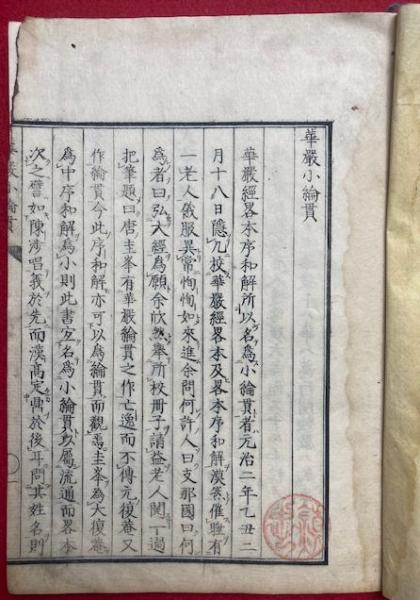 華嚴小綸貫
華嚴經畧本序和解所以名爲小綸貫者元治二年乙丑二
月十八日隱几校華嚴經畧本及畧本序和解漠然催睡有
一老人儀服異常恂恂如來進余問何許人曰支那國曰何
爲者曰弘大經爲願余欣然舉所校冊子請益老人閲一過
把筆題曰唐圭峯有華嚴綸貫之作亡逸而不傳元復菴又
作綸貫今此序和解亦可以爲綸貫而觀焉圭峯爲大復菴
爲中序和解爲小則此書宜名爲小綸貫以屬流通而畧本
次之譬如陳涉唱義於先而漢高定鼎於後耳問其姓名則
華嚴小綸貫
一